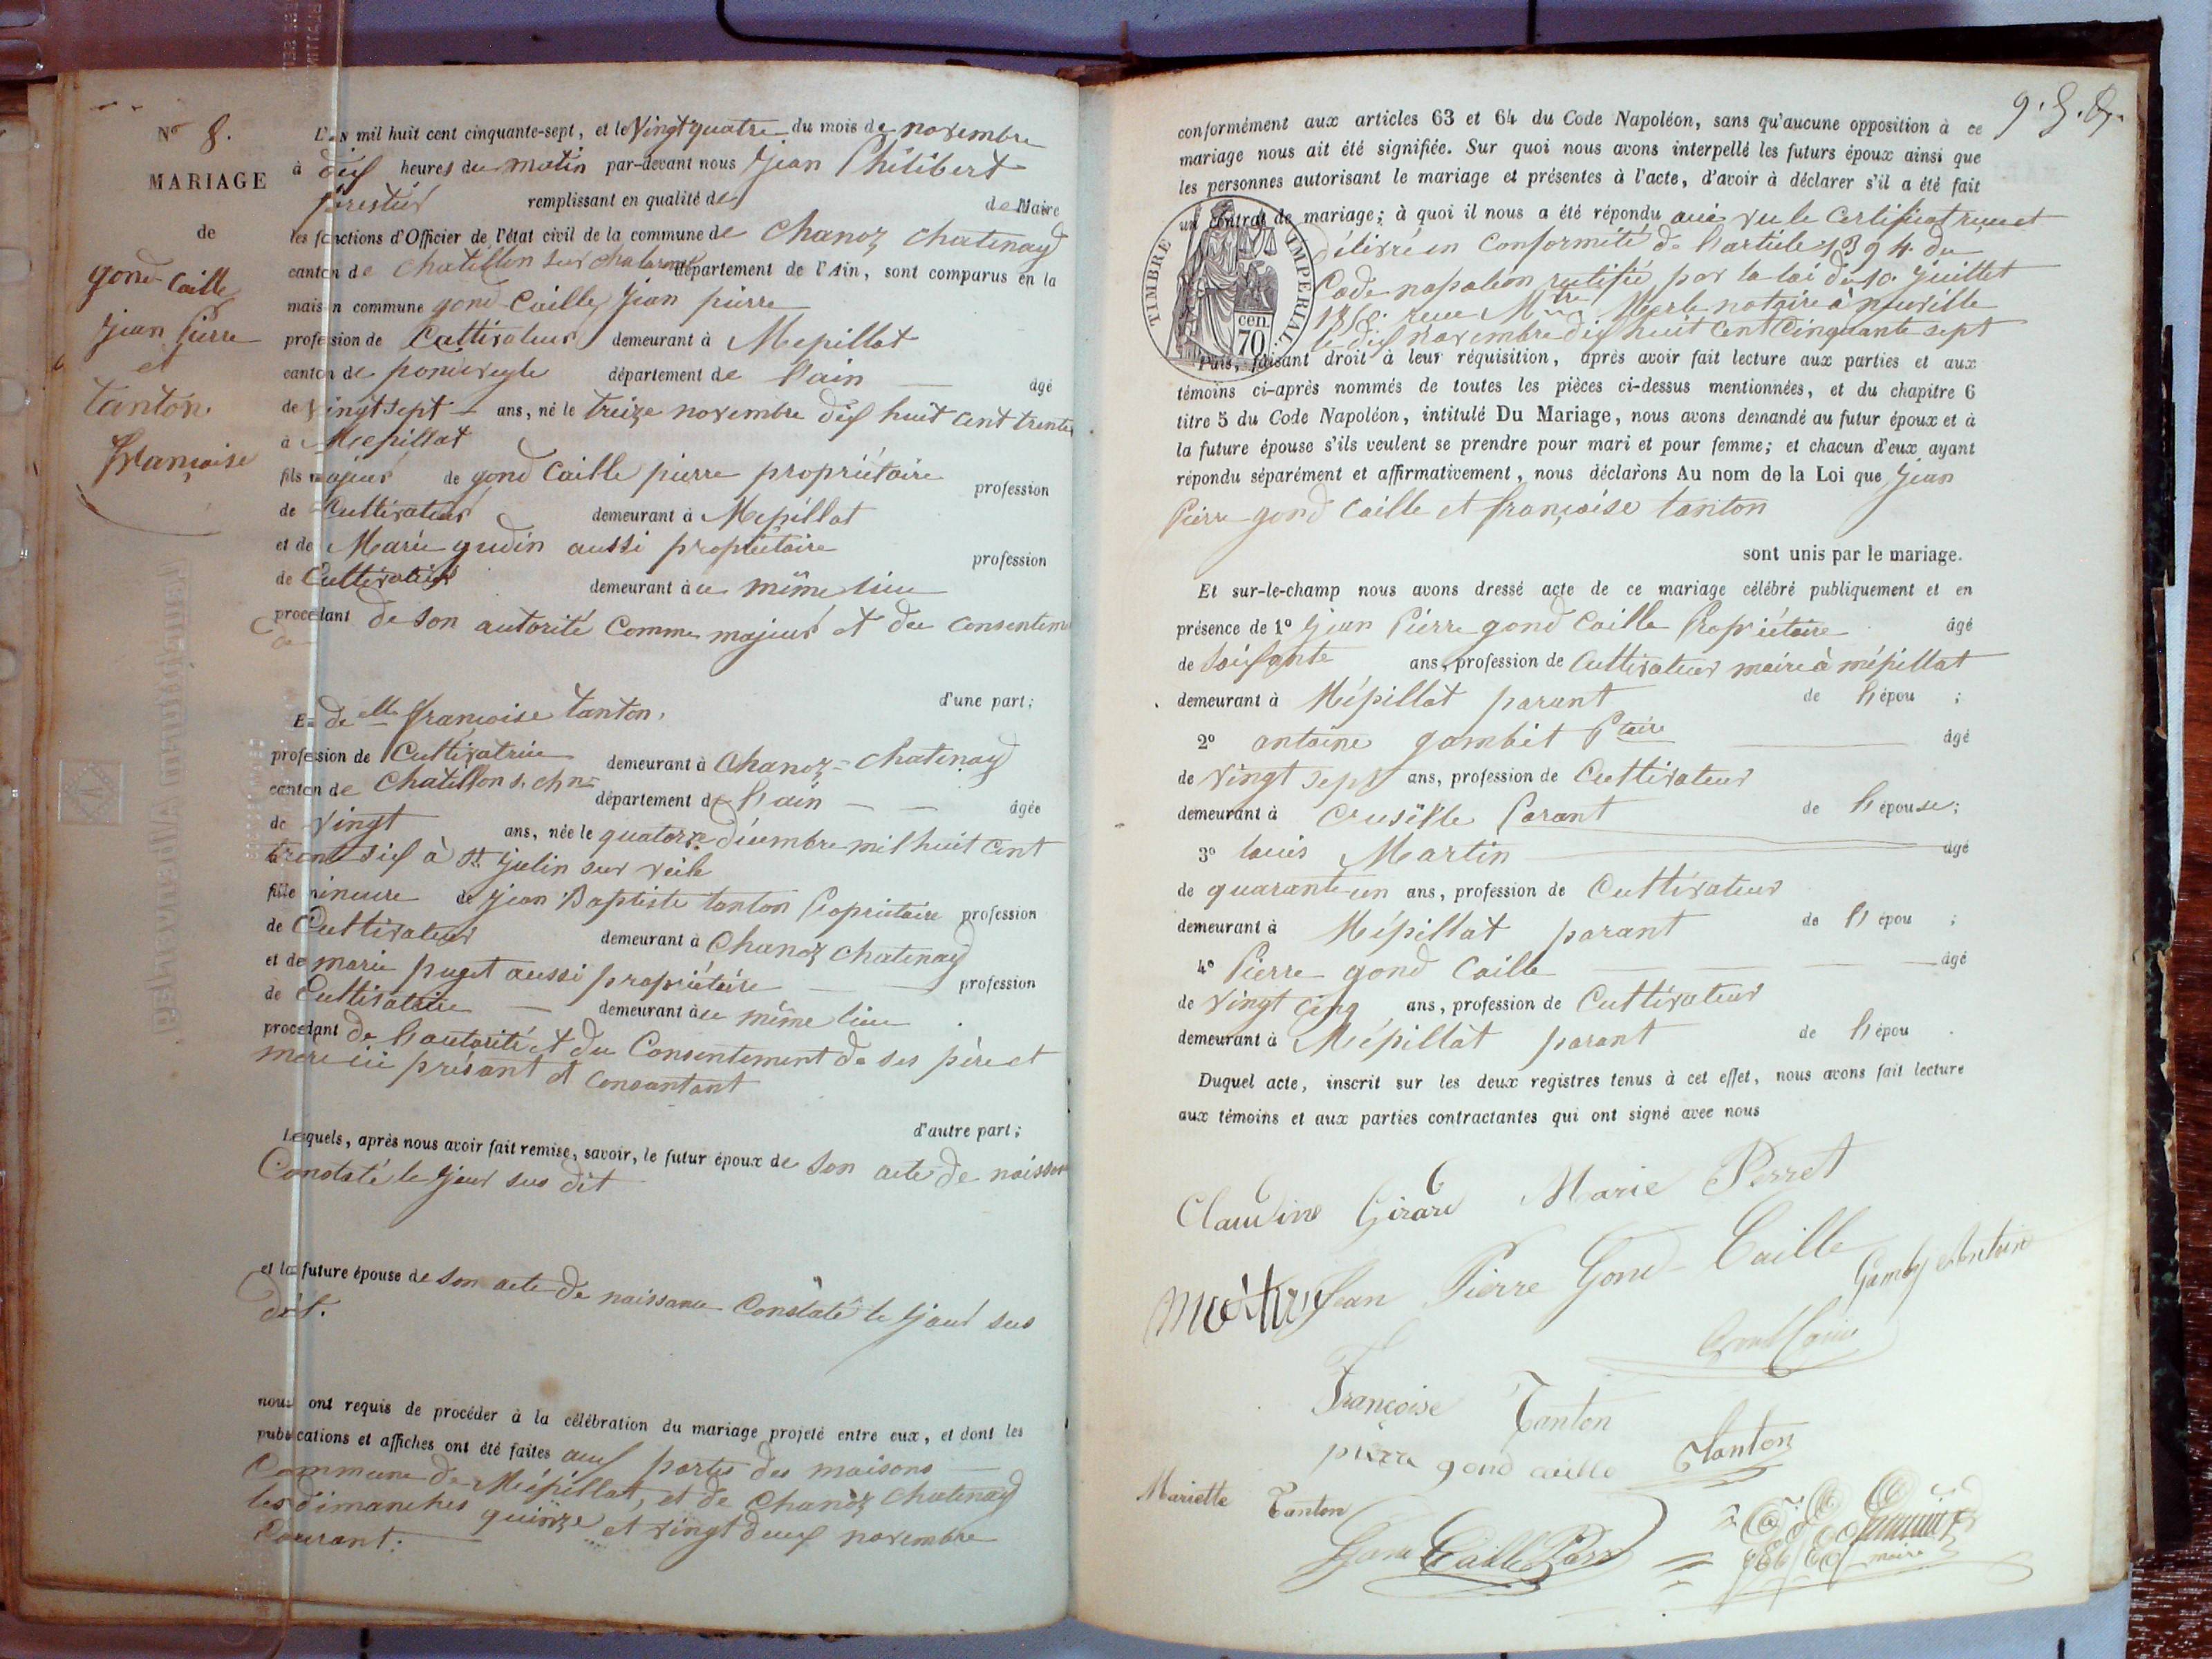 Nº 8.
MARIAGE
de
gond-Caille
Jean Pierre
et
tanton
françoise
L'an mil huit cent cinquante-sept, et le Vingt quatre du mois de novembre
à dix heures du matin par-devant nous Jean Philibert
forestier remplissant en qualité de de Maire
les fonctions d'Officier de l'état civil de la commune de Chanoz Chatenay
canton de Chatillon sur chalaronne département de l'Ain, sont comparus en la
maison commune gond-Caille Jean pierre
profession de Cultivateur demeurant à Mepillat
canton de pondeveyle département de l'ain âgé
de vingt sept ans, né le treize novembre dix huit cent trente
à Mepillat
fils majeur de gond Caille pierre propriétaire profession
de Cultivateur demeurant à Mepillat
et de Marie gudin aussi propriétaire profession
de Cultivateur demeurant à ce même lieu
procédant de son autorité Comme majeur et du consenteme
d'une part;
Et delle françoise tanton,
profession de Cultivatrice demeurant à Chanoz-Chatenay
canton de Chatillon s. chne département de l'ain âgée
de vingt ans, née le quatorze décembre mil huit cent
trente six à St. Julin sur veile
fille mineure de Jean Baptiste tanton Propriétaire profession
de Cultivateur demeurant à Chanoz chatenay
et de marie puget aussi propriétaire profession
de Cultivatrice demeurant à ce même lieu
procédant de l'autorité et du Consentement de ses père et
mere ici présant et consantant
d'autre part;
Lesquels, après nous avoir fait remise, savoir, le futur époux de son acte de naissan
Constaté le jour sus dit
et la future épouse de son acte de naissance Constaté le jour sus
dit.
nous ont requis de procéder à la célébration du mariage projeté entre eux, et dont les
publications et affiches ont été faites aux portes des maisons
Commune de Mépillat, et de Chanoz Chatenay
les dimanches quinze et vingt deux novembre
Courant.
conformément aux articles 63 et 64 du Code Napoléon, sans qu'aucune opposition à ce
mariage nous ait été signifiée. Sur quoi nous avons interpellé les futurs époux ainsi que
les personnes autorisant le mariage et présentes à l'acte, d'avoir à déclarer s'il a été fait
un contrat de mariage; à quoi il nous a été répondu oui vu le Certificat reçu et
délivré en Conformité de l'article 1394 du
Code napoleon rectifié par la loi du 10. Juillet
1850. reçu Mtre Merle notaire à neuville
le dix novembre dix huit cent Cinquante sept
TIMBRE IMPERIAL
70 cen.
Puis, faisant droit à leur réquisition, après avoir fait lecture aux parties et aux
témoins ci-après nommés de toutes les pièces ci-dessus mentionnées, et du chapitre 6
titre 5 du Code Napoléon, intitulé Du Mariage, nous avons demandé au futur époux et à
la future épouse s'ils veulent se prendre pour mari et pour femme; et chacun d'eux ayant
répondu séparément et affirmativement, nous déclarons Au nom de la Loi que Jean
Pierre gond Caille et françoise tanton
sont unis par le mariage.
Et sur-le-champ nous avons dressé acte de ce mariage célébré publiquement et en
présence de 1º Jean Pierre gond Caille Propriétaire âgé
de soixante ans, profession de Cultivateur maire à mépillat
demeurant à Mépillat parant de l'épou ;
2º antoine gambit Ptaire âgé
de vingt sept ans, profession de Cultivateur
demeurant à Crusille Parant de l'épouse;
3º louis Martin âgé
de quarante un ans, profession de Cultivateur
demeurant à Mépillat parant de l'épou ;
4º Pierre gond Caille âgé
de vingt cinq ans, profession de Cultivateur
demeurant à Mépillat parant de l'épou .
Duquel acte, inscrit sur les deux registres tenus à cet effet, nous avons fait lecture
aux témoins et aux parties contractantes qui ont signé avec nous
Claudine Girard Marie Perret
Jean Pierre Gond-Caille
Gamby Antoin
Françoise Tanton
pierre gond caille Tanton
Mariette Tanton
Gond Caille Parr
maire